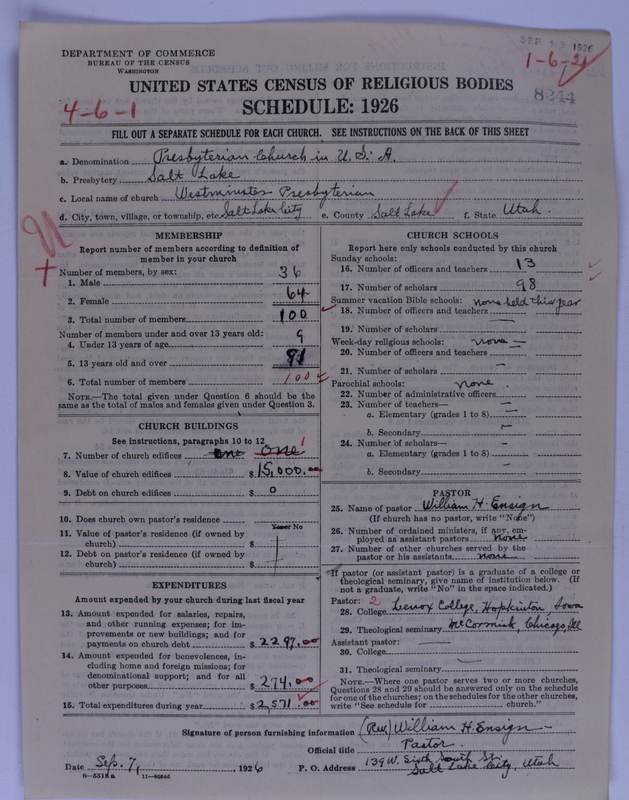 DEPARTMENT OF COMMERCE
BUREAU OF THE CENSUS
WASHINGTON
SEP 13 1926
1-6-21
8244
UNITED STATES CENSUS OF RELIGIOUS BODIES
SCHEDULE: 1926
4-6-1
FILL OUT A SEPARATE SCHEDULE FOR EACH CHURCH. SEE INSTRUCTIONS ON THE BACK OF THIS SHEET
a. Denomination Presbyterian Church in U. S. A.
b. Presbytery Salt Lake
c. Local name of church Westminster Presbyterian
d. City, town, village, or township, etc. Salt Lake City e. County Salt Lake f. State Utah.
MEMBERSHIP
Report number of members according to definition of member in your church
Number of members, by sex:
1. Male 36
2. Female 64
3. Total number of members 100
Number of members under and over 13 years old:
4. Under 13 years of age 9
5. 13 years old and over 91
6. Total number of members 100
NOTE.—The total given under Question 6 should be the same as the total of males and females given under Question 3.
CHURCH BUILDINGS
See instructions, paragraphs 10 to 12
7. Number of church edifices one one 1
8. Value of church edifices $ 15,000.00
9. Debt on church edifices $ 0
10. Does church own pastor's residence
Yes or No
11. Value of pastor's residence (if owned by church) $
12. Debt on pastor's residence (if owned by church) $
EXPENDITURES
Amount expended by your church during last fiscal year
13. Amount expended for salaries, repairs, and other running expenses; for improvements or new buildings; and for payments on church debt $ 2297.00
14. Amount expended for benevolences, including home and foreign missions; for denominational support; and for all other purposes $ 274.00
15. Total expenditures during year $ 2,571.00
CHURCH SCHOOLS
Report here only schools conducted by this church
Sunday schools:
16. Number of officers and teachers 13
17. Number of scholars 98
Summer vacation Bible schools: none held this year
18. Number of officers and teachers
19. Number of scholars —
Week-day religious schools: none —
20. Number of officers and teachers
21. Number of scholars —
Parochial schools: none.
22. Number of administrative officers —
23. Number of teachers—
a. Elementary (grades 1 to 8) —
b. Secondary —
24. Number of scholars— —
a. Elementary (grades 1 to 8) —
b. Secondary —
PASTOR
25. Name of pastor William H. Ensign
(If church has no pastor, write "None")
26. Number of ordained ministers, if any, employed as assistant pastors none
27. Number of other churches served by the pastor or his assistants none
If pastor (or assistant pastor) is a graduate of a college or theological seminary, give name of institution below. (If not a graduate, write "No" in the space indicated.)
Pastor: 2
28. College Lenox College, Hopkinton, Iowa
29. Theological seminary McCormick, Chicago, Ill
Assistant pastor: —
30. College —
31. Theological seminary —
NOTE.—Where one pastor serves two or more churches, Questions 28 and 29 should be answered only on the schedule for one of the churches; on the schedules for the other churches, write "See schedule for church."
Signature of person furnishing information (Rev) William H. Ensign
Official title Pastor.
Date Sep. 7, 1926 P. O. Address 139 W. Sixth South St.
Salt Lake City, Utah